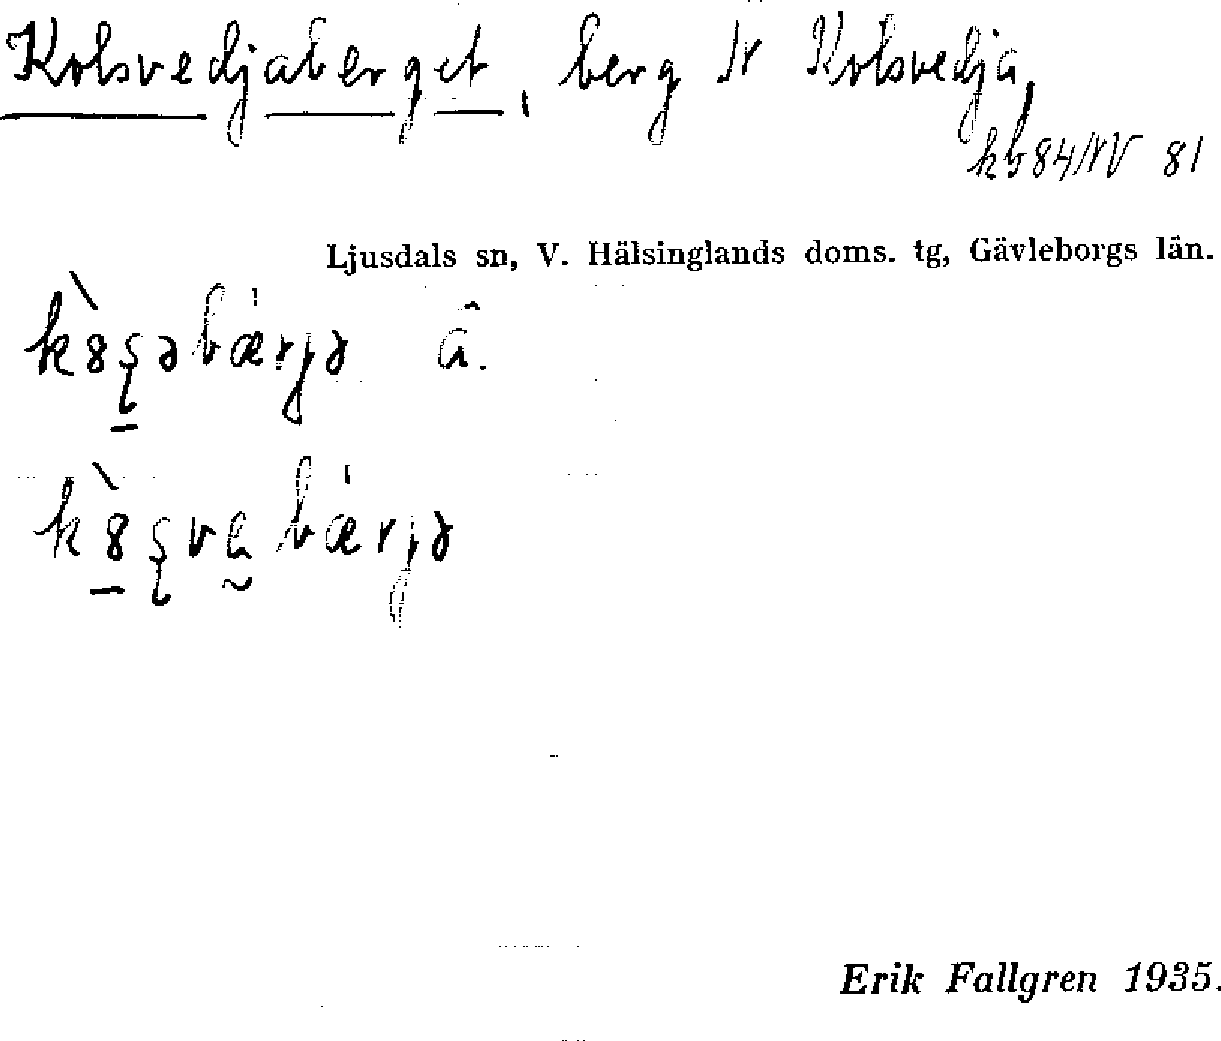 Kolsvedjaberget, berg N Kolsvedja,
kb 84/NV 81
Ljusdals sn, V. Hälsinglands doms. tg, Gävleborgs län.
Erik Fallgren 1935.